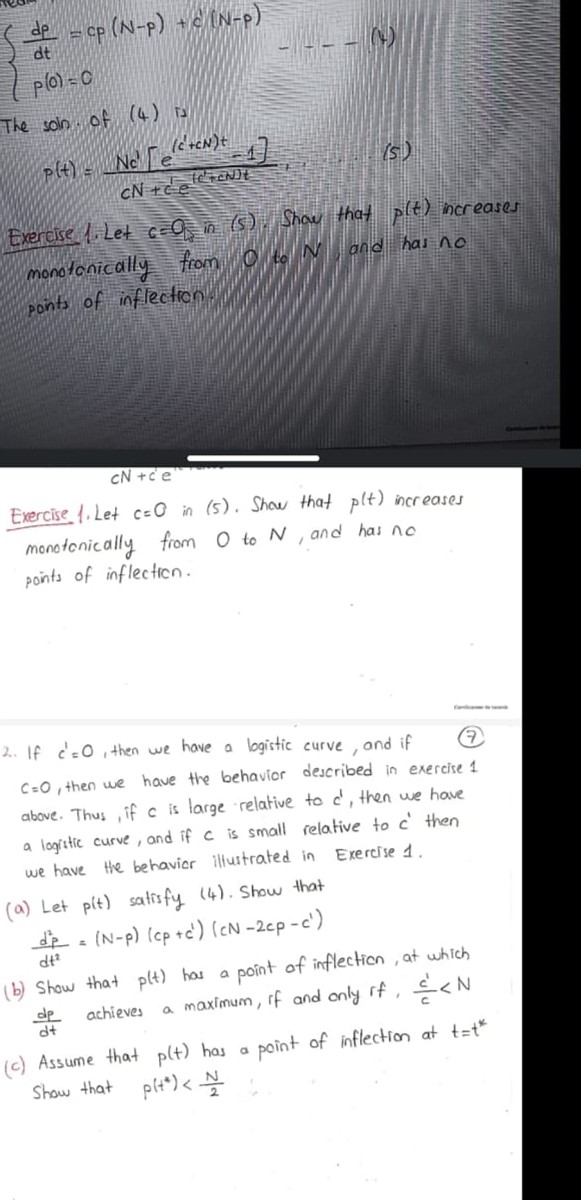 dp/dt = cp (N-p) + c' (N-p)
- - - - (4)
p(0) = 0
The soln. of (4) is
p(t) = Nc' [e^(c'+cN)t - 1] / cN + c'e^(c'+cN)t . . . . . (5)
Exercise 1. Let c=0 in (5). Show that p(t) increases
monotonically from 0 to N, and has no
points of inflection.
cN + c'e
Exercise 1. Let c=0 in (5). Show that p(t) increases
monotonically from 0 to N, and has no
points of inflection.
7
2. If c'=0, then we have a logistic curve, and if
c=0, then we have the behavior described in exercise 1
above. Thus, if c is large relative to c', then we have
a logistic curve, and if c is small relative to c' then
we have the behavior illustrated in Exercise 1.
(a) Let p(t) satisfy (4). Show that
d²p/dt² = (N-p) (cp+c') (cN-2cp-c')
(b) Show that p(t) has a point of inflection, at which
dp/dt achieves a maximum, if and only if, c'/c < N
(c) Assume that p(t) has a point of inflection at t=t*
Show that p(t*) < N/2